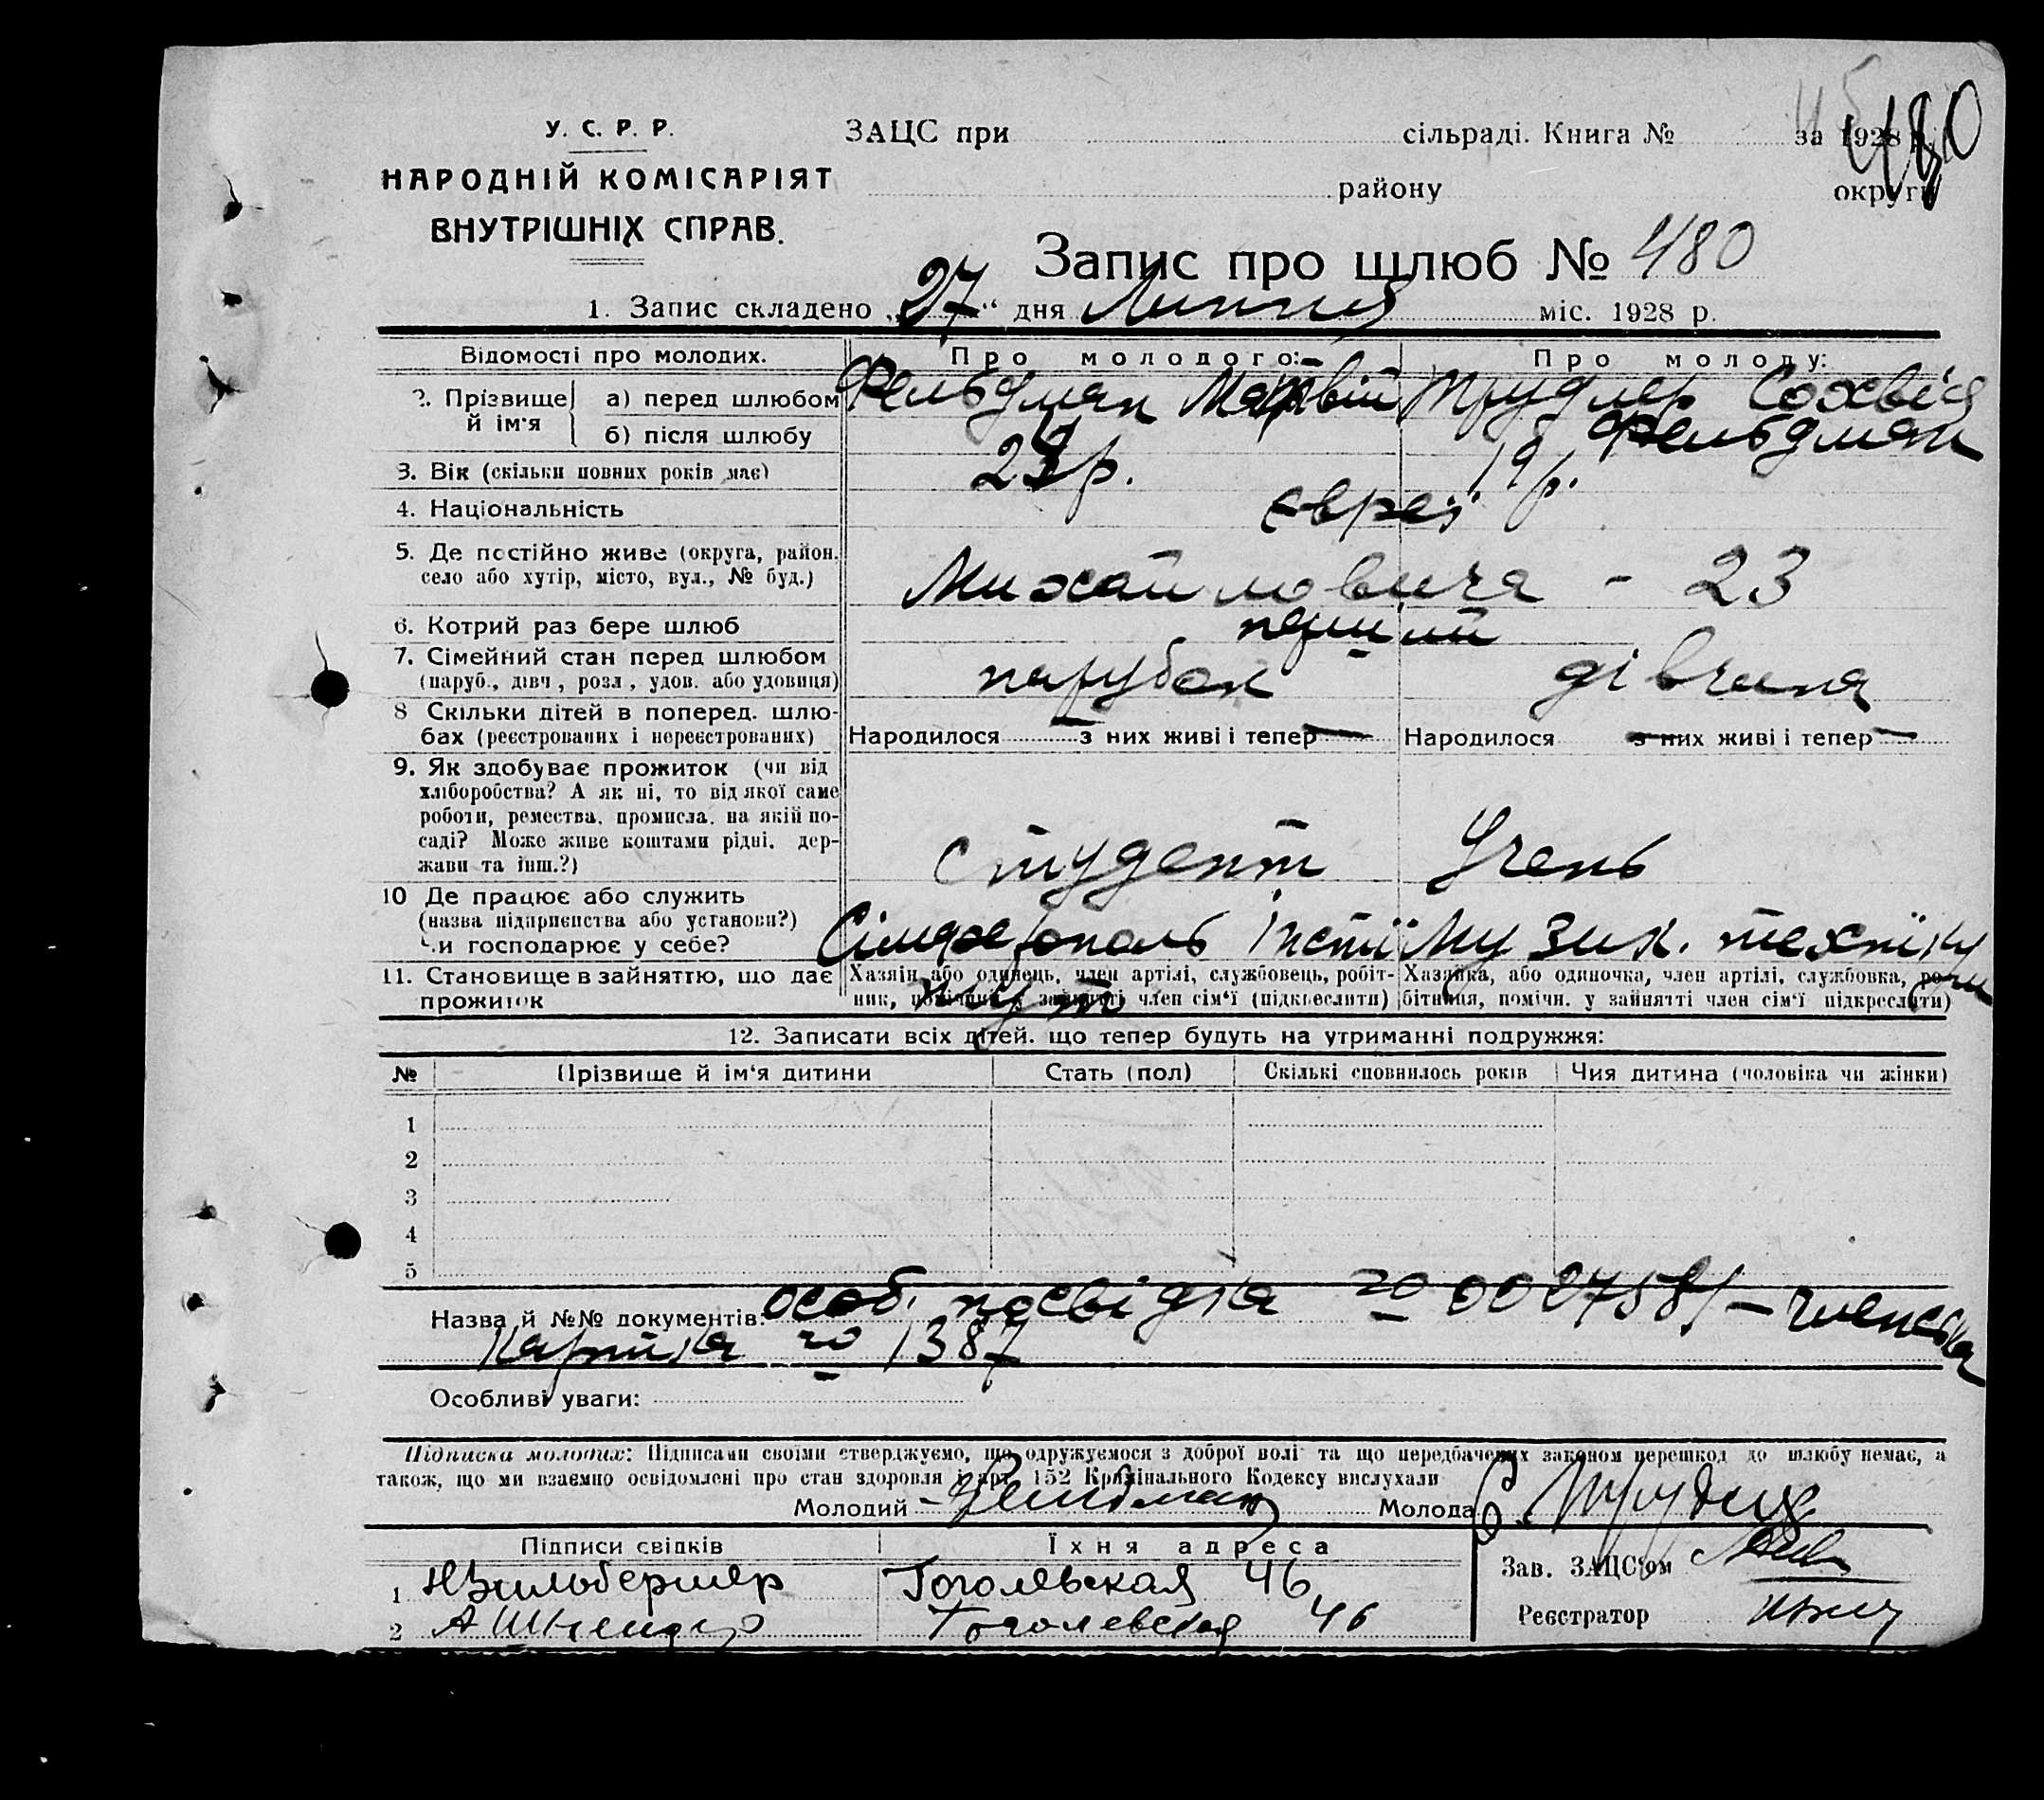 480
У. С. Р. Р.
НАРОДНІЙ КОМІСАРІЯТ
ВНУТРІШНІХ СПРАВ.
ЗАЦС при сільраді. Книга № за 1928 р.
району округи
Запис про шлюб № 480
1. Запис складено „27“ дня Липня міс. 1928 р.
Відомості про молодих. Про молодого: Про молоду:
2. Прізвище й ім'я а) перед шлюбом Фельдман Матвій Трудлер Сохвія
б) після шлюбу Фельдман
3. Вік (скільки повних років має) 23 р. 19 р.
4. Національність євреї
5. Де постійно живе (округа, район.
село або хутір, місто, вул., № буд.) Михайловича - 23
6. Котрий раз бере шлюб перший
7. Сімейний стан перед шлюбом
(паруб., дівч., розл., удов. або удовиця) парубок дівчина
8 Скільки дітей в поперед. шлю-
бах (реєстрованих і нереєстрованих) Народилося — з них живі і тепер — Народилося — з них живі і тепер —
9. Як здобуває прожиток (чи від
хліборобства? А як ні, то від якої саме
роботи, ремества, промисла, на якій по-
саді? Може живе коштами рідні, дер-
жави та інш.?) студент Учень
10 Де працює або служить
(назва підприємства або установи?)
Чи господарює у себе? Сімферополь інсти- тут Музик. технікум
11. Становище в зайняттю, що дає
прожиток
Хазяїн або одинець, член артілі, службовець, робіт-
ник, помічник у зайнятті член сім'ї (підкреслити)
Хазяйка, або одиночка, член артілі, службовка, ро-
бітниця, помічн. у зайнятті член сім'ї підкреслити)
12. Записати всіх дітей, що тепер будуть на утриманні подружжя:
№ Прізвище й ім'я дитини Стать (пол) Скількі сповнилось років Чия дитина (чоловіка чи жінки)
1
2
3
4
5
Назва й №№ документів: особ. посвідка № — членська
картка № 1387
Особливі уваги:
Підписка молодих: Підписами своїми стверджуємо, що одружуємося з доброї волі та що передбачених законом перешкод до шлюбу немає, а
також, що ми взаємно освідомлені про стан здоровля і арт. 152 Кримінального Кодексу вислухали
Молодий Фельдман Молода С. Трудлер
Підписи свідків Їхня адреса
1 Гоголевская 46
2 А Шнендер Гоголевская 46
Зав. ЗАЦС'ом
Реєстратор